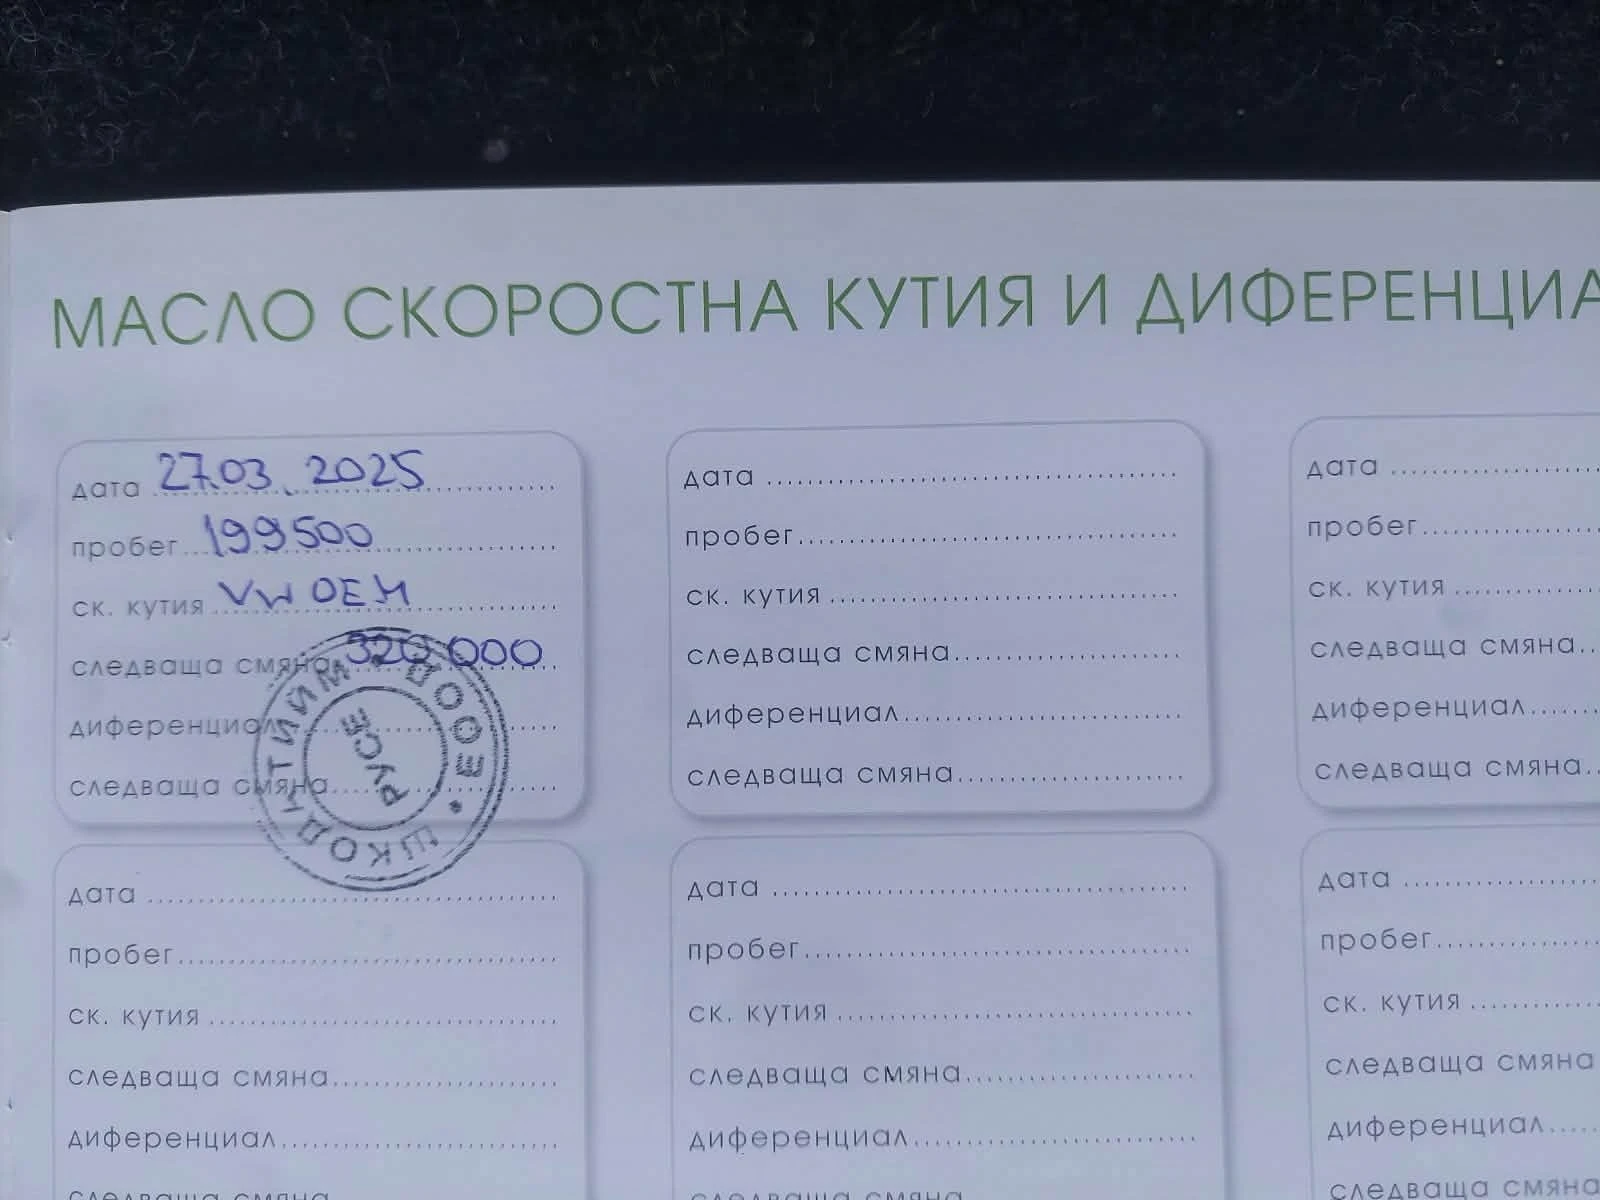 МАСЛО СКОРОСТНА КУТИЯ И ДИФЕРЕНЦИА
дата 27.03.2025
пробег 199500
ск. кутия VW OEM
следваща смяна 320 000
диференциал
следваща смяна
ШКОДА ТИЙМ • ЕООД •
РУСЕ
дата
пробег
ск. кутия
следваща смяна
диференциал
следваща смяна
дата
пробег
ск. кутия
следваща смяна
диференциал
следваща смяна
дата
пробег
ск. кутия
следваща смяна
диференциал
следваща смяна
дата
пробег
ск. кутия
следваща смяна
диференциал
следваща смяна
дата
пробег
ск. кутия
следваща смяна
диференциал
следваща смяна